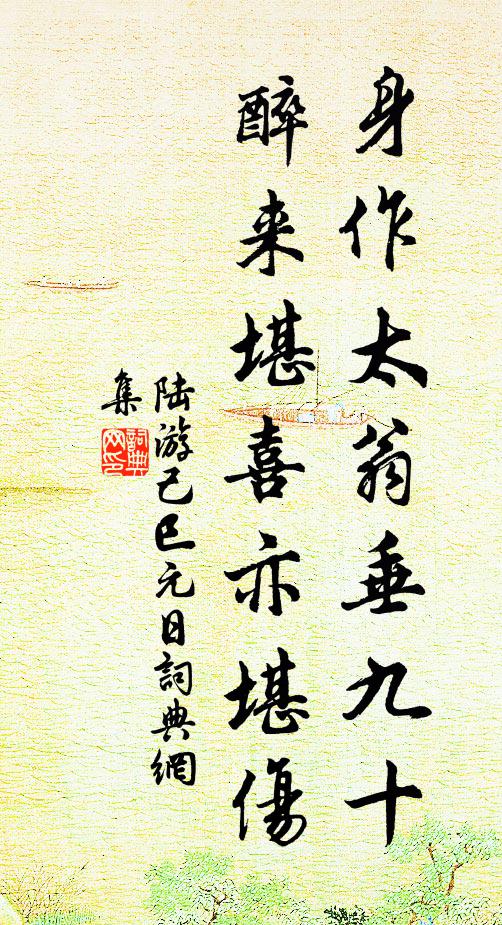 身作太翁垂九十
醉来堪喜亦堪傷
陆游己巳元日詞典網
集
詞典網印